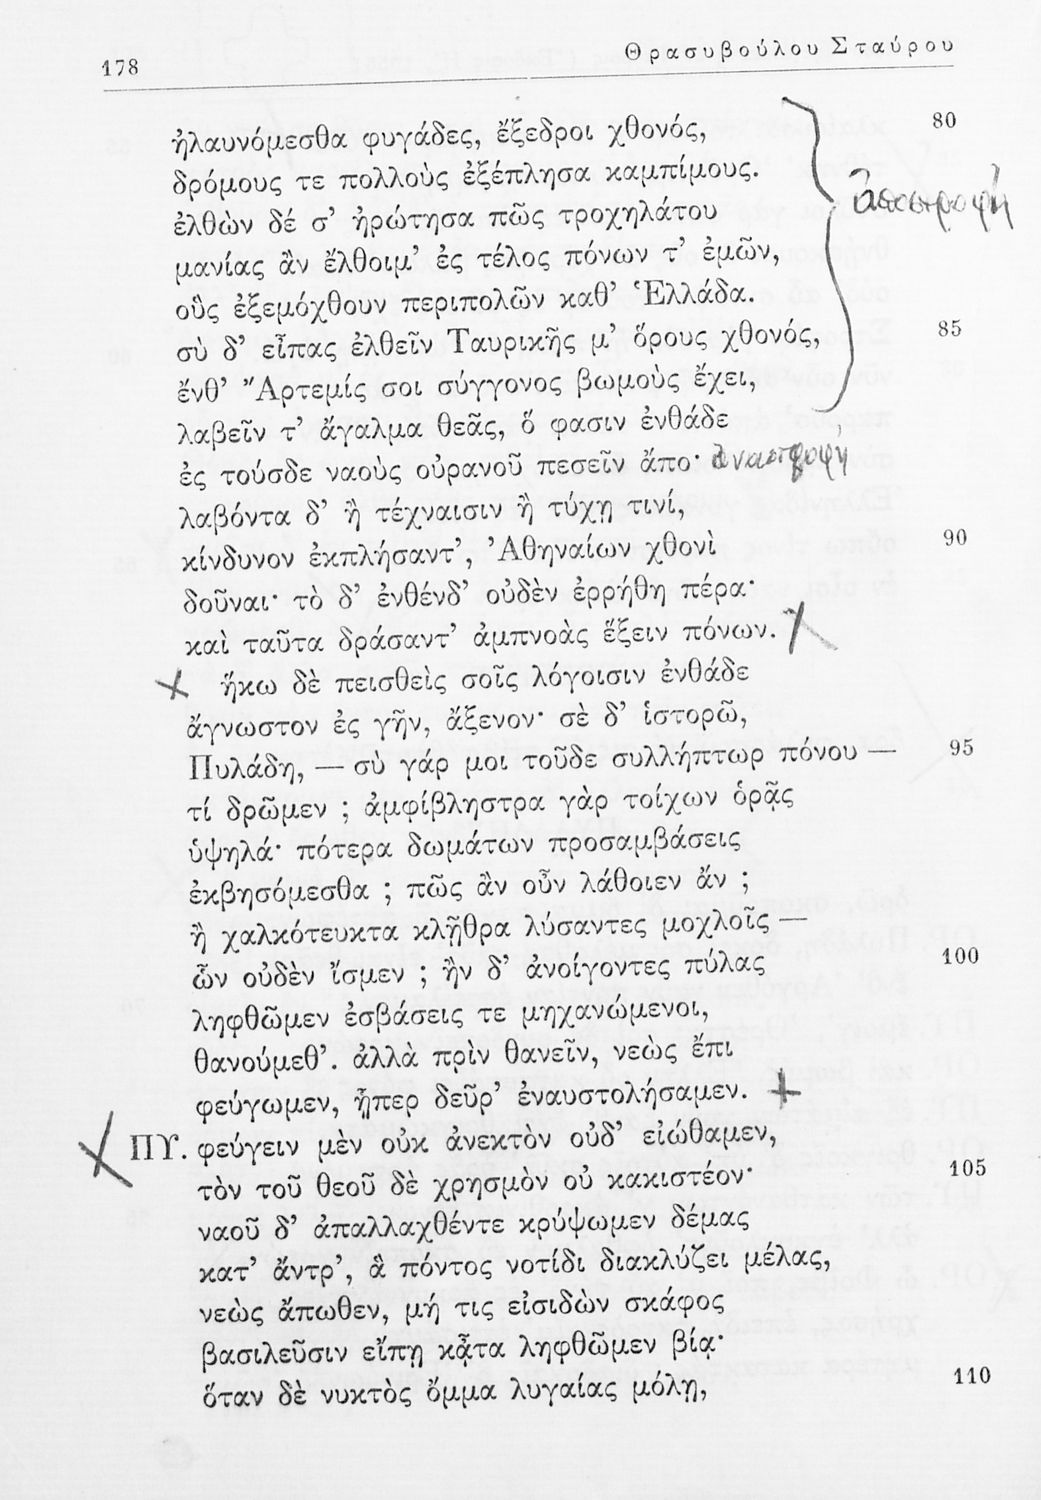 178
Θρασυβούλου Σταύρου
ἠλαυνόμεσθα φυγάδες, ἔξεδροι χθονός, 80
δρόμους τε πολλοὺς ἐξέπλησα καμπίμους.
ἀποστροφή
ἐλθὼν δέ σ’ ἠρώτησα πῶς τροχηλάτου
μανίας ἂν ἔλθοιμ’ ἐς τέλος πόνων τ’ ἐμῶν,
οὓς ἐξεμόχθουν περιπολῶν καθ’ Ἑλλάδα.
σὺ δ’ εἶπας ἐλθεῖν Ταυρικῆς μ’ ὅρους χθονός, 85
ἔνθ’ Ἄρτεμίς σοι σύγγονος βωμοὺς ἔχει,
λαβεῖν τ’ ἄγαλμα θεᾶς, ὅ φασιν ἐνθάδε
ἐς τούσδε ναοὺς οὐρανοῦ πεσεῖν ἄπο· ἀναστροφή
λαβόντα δ’ ἢ τέχναισιν ἢ τύχῃ τινί,
κίνδυνον ἐκπλήσαντ’, Ἀθηναίων χθονὶ 90
δοῦναι· τὸ δ’ ἐνθένδ’ οὐδὲν ἐρρήθη πέρα·
καὶ ταῦτα δράσαντ’ ἀμπνοὰς ἕξειν πόνων.
ἥκω δὲ πεισθεὶς σοῖς λόγοισιν ἐνθάδε
ἄγνωστον ἐς γῆν, ἄξενον· σὲ δ’ ἱστορῶ,
Πυλάδη, — σὺ γάρ μοι τοῦδε συλλήπτωρ πόνου — 95
τί δρῶμεν ; ἀμφίβληστρα γὰρ τοίχων ὁρᾷς
ὑψηλά· πότερα δωμάτων προσαμβάσεις
ἐκβησόμεσθα ; πῶς ἂν οὖν λάθοιεν ἄν ;
ἢ χαλκότευκτα κλῇθρα λύσαντες μοχλοῖς —
ὧν οὐδὲν ἴσμεν ; ἢν δ’ ἀνοίγοντες πύλας 100
ληφθῶμεν ἐσβάσεις τε μηχανώμενοι,
θανούμεθ’. ἀλλὰ πρὶν θανεῖν, νεὼς ἔπι
φεύγωμεν, ᾗπερ δεῦρ’ ἐναυστολήσαμεν.
ΠΥ. φεύγειν μὲν οὐκ ἀνεκτὸν οὐδ’ εἰώθαμεν,
τὸν τοῦ θεοῦ δὲ χρησμὸν οὐ κακιστέον· 105
ναοῦ δ’ ἀπαλλαχθέντε κρύψωμεν δέμας
κατ’ ἄντρ’, ἃ πόντος νοτίδι διακλύζει μέλας,
νεὼς ἄπωθεν, μή τις εἰσιδὼν σκάφος
βασιλεῦσιν εἴπῃ κᾆτα ληφθῶμεν βίᾳ·
ὅταν δὲ νυκτὸς ὄμμα λυγαίας μόλῃ, 110